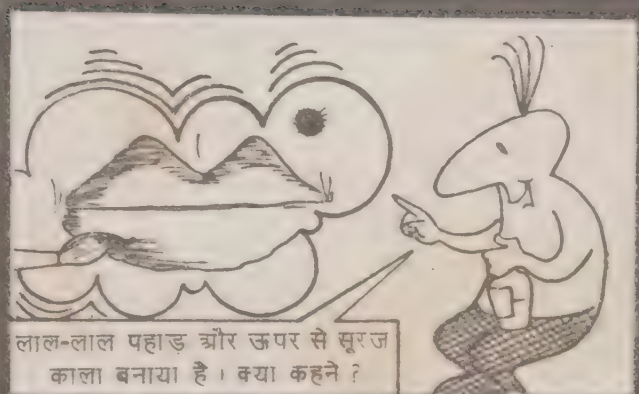 लाल-लाल पहाड़ और ऊपर से सूरज
काला बनाया है । क्या कहने ?